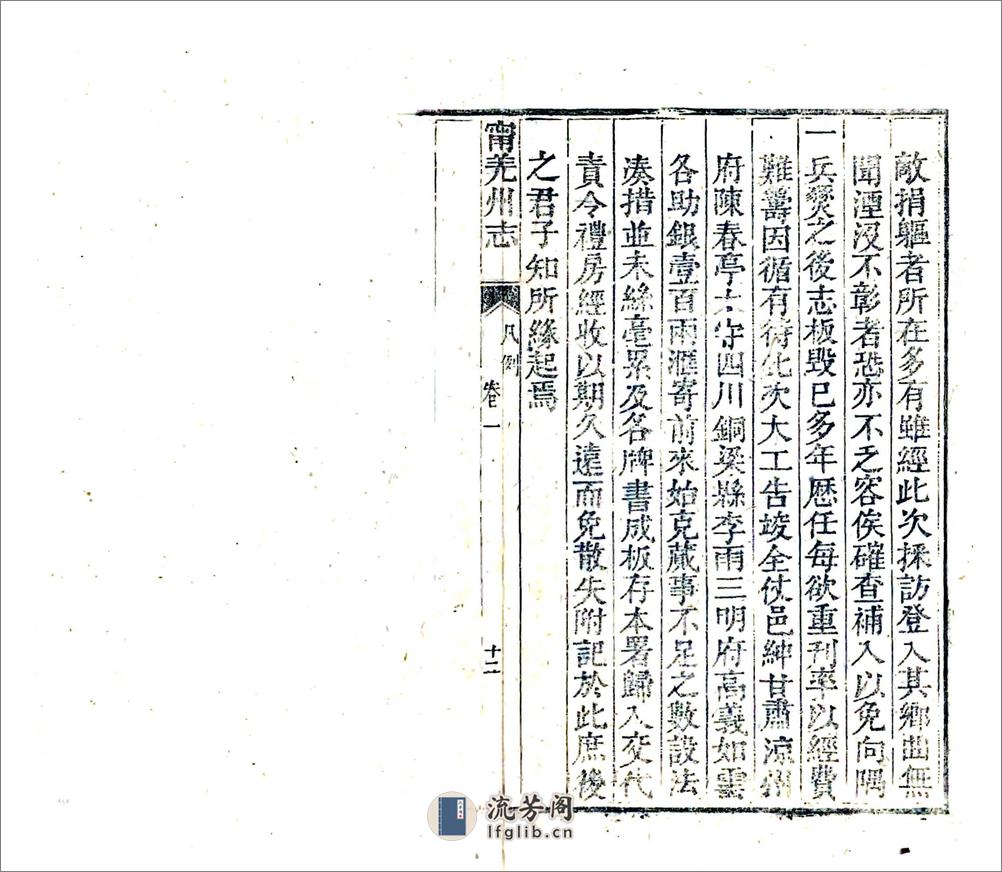 敵捐軀者所在多有雖經此次採訪登入其鄉曲無
聞湮沒不彰者恐亦不乏容俟確查補入以免向隅
一兵燹之後志板毀已多年歷任每欲重刊率以經費
難籌因循有待此次大工告竣全仗邑紳甘肅涼州
府陳春亭太守四川銅梁縣李雨三明府高義如雲
各助銀壹百兩滙寄前來始克蕆事不足之數設法
湊措並未絲毫累及各牌書成板存本署歸入交代
責令禮房經收以期久遠而免散失附記於此庶後
之君子知所緣起焉
甯羌州志 凡例 卷一 十二
流芳阁
lfglib.cn